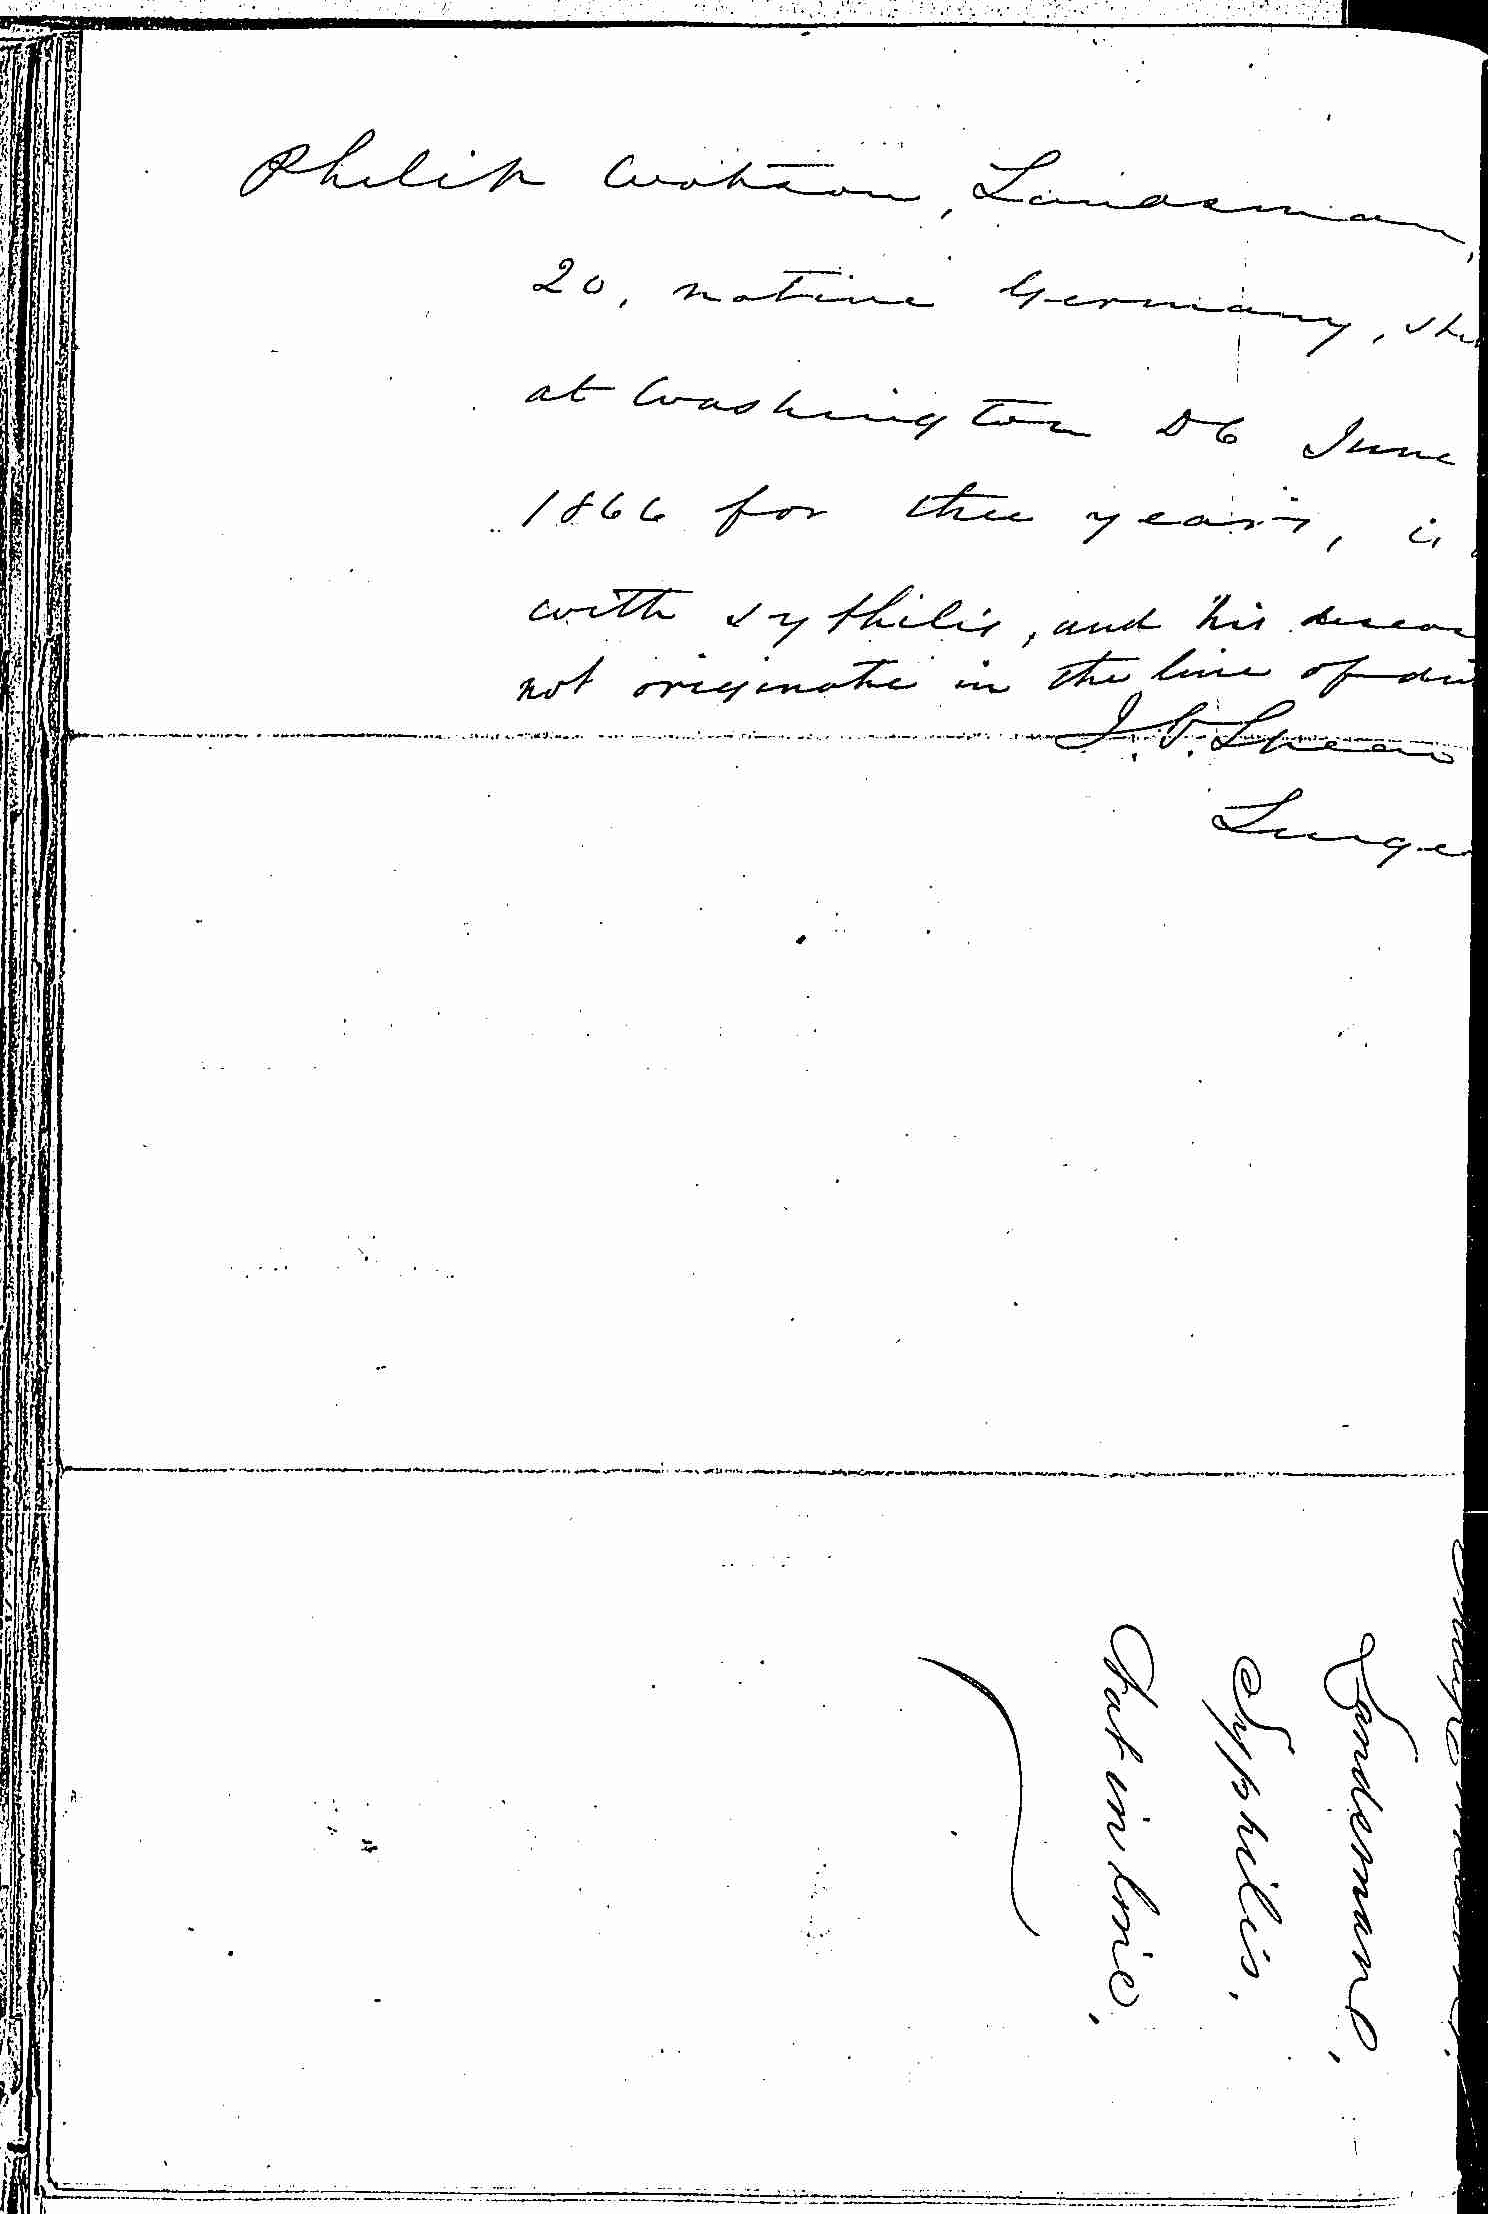 Philip Watson, Landsman,
20, native Germany, shi
at Washington DC June
1866 for three years, is
with syphilis, and his diseas
not originate in the line of du
Surge
Landesmann,
Syphilis,
Not in line,